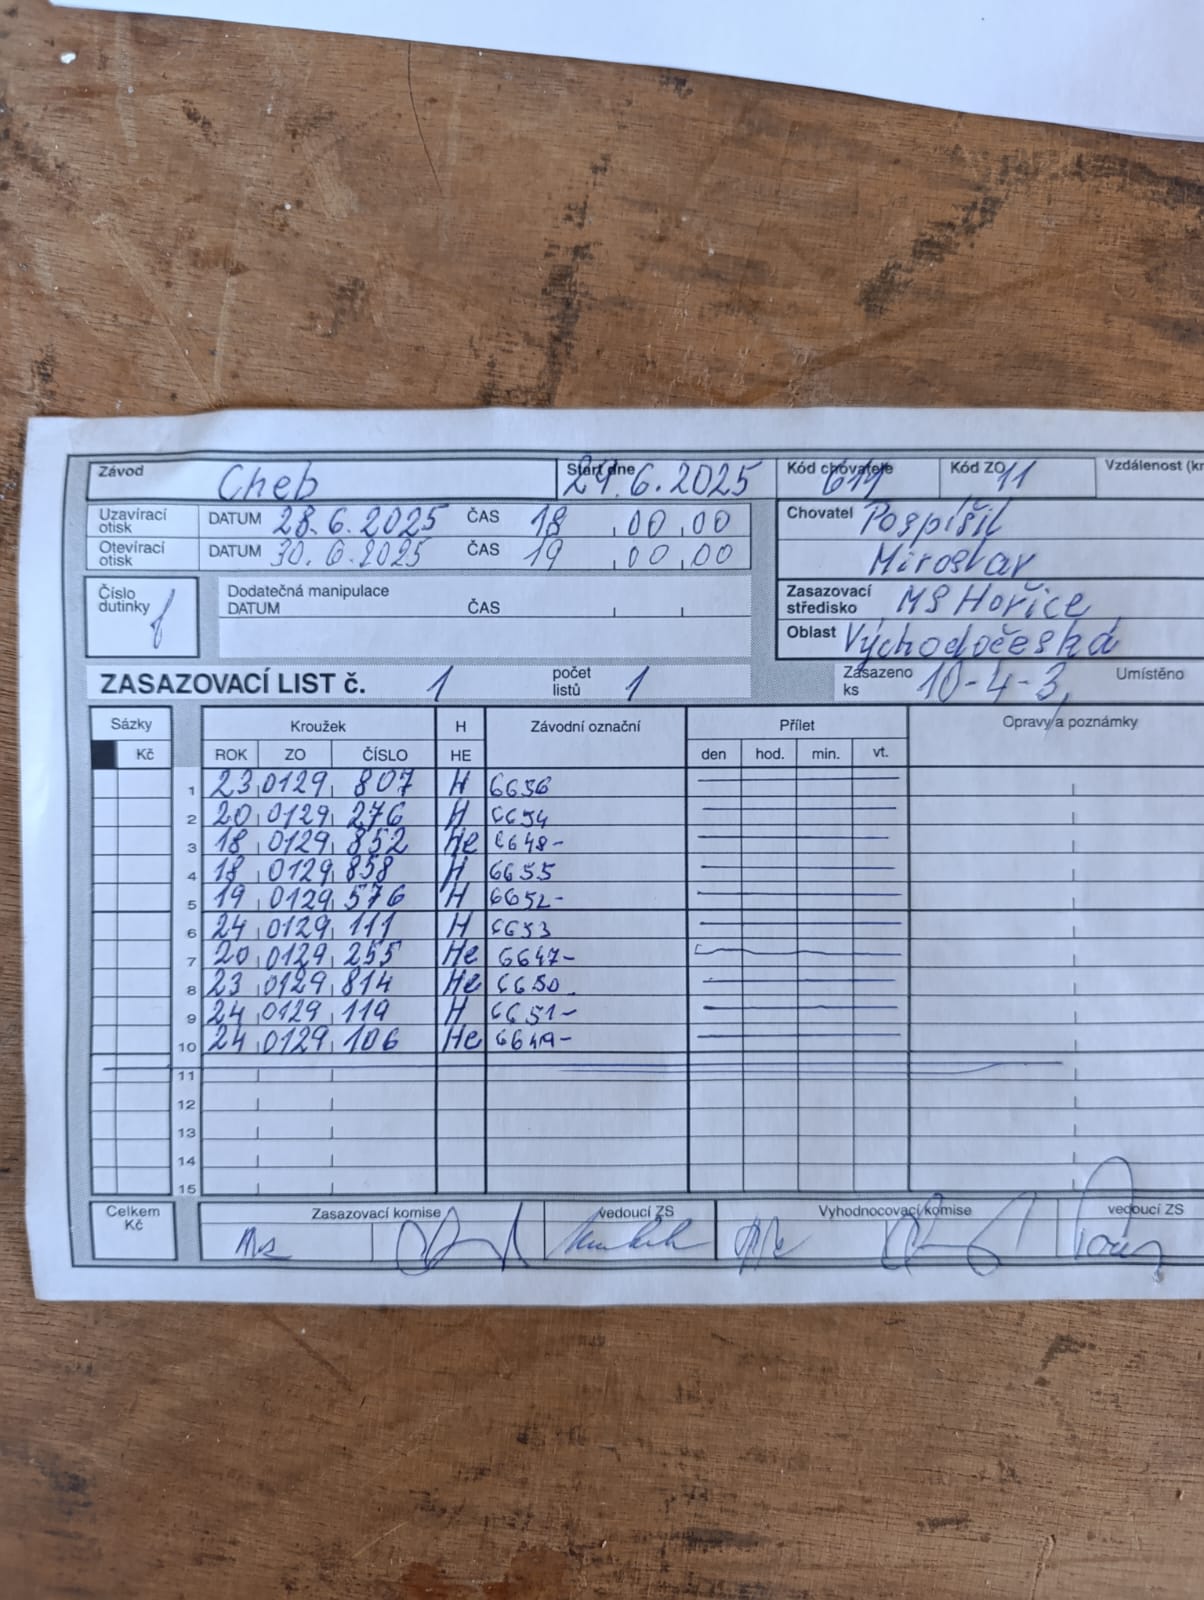 Závod Cheb Start dne 29.6.2025 Kód chovatele 614 Kód ZO 11 Vzdálenost (kr
Uzavírací otisk DATUM 28.6.2025 ČAS 18 00 00 Chovatel Pospíšil
Otevírací otisk DATUM 30.6.2025 ČAS 19 00 00 Miroslav
Číslo dutinky Dodatečná manipulace Zasazovací středisko MS Hořice
DATUM ČAS Oblast Východočeská
ZASAZOVACÍ LIST č. 1 počet listů 1 Zasazeno ks 10-4-3, Umístěno
Sázky Kroužek H Závodní označní Přílet Opravy a poznámky
Kč ROK ZO ČÍSLO HE den hod. min. vt.
1 23 0129 807 H 6656
2 20 0129 276 H 6654
3 18 0129 852 He 6648-
4 18 0129 858 H 6655
5 19 0129 576 H 6652-
6 24 0129 111 H 6653
7 20 0129 255 He 6647-
8 23 0129 814 He 6650
9 24 0129 119 H 6651-
10 24 0129 106 He 6649-
11
12
13
14
15
Celkem Kč Zasazovací komise vedoucí ZS Vyhodnocovací komise vedoucí ZS